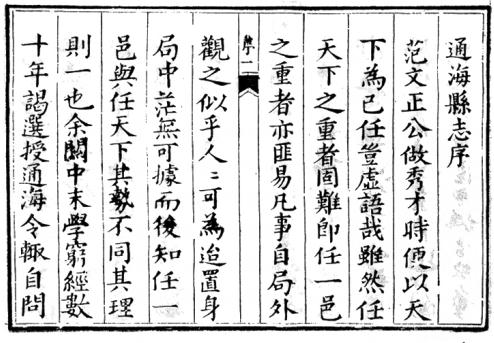 通海縣志序
范文正公做秀才時便以天
下為己任豈虛語哉雖然任
天下之重者固難即任一邑
之重者亦匪易凡事自局外
序二
觀之似乎人〻可為迨置身
局中茫無可據而後知任一
邑與任天下其勢不同其理
則一也余關中末學窮經數
十年謁選授通海令輙自問